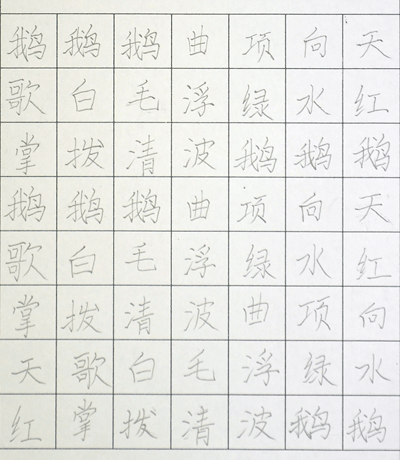 鹅鹅鹅曲项向天
歌白毛浮绿水红
掌拨清波鹅鹅鹅
鹅鹅鹅曲项向天
歌白毛浮绿水红
掌拨清波曲项向
天歌白毛浮绿水
红掌拨清波鹅鹅